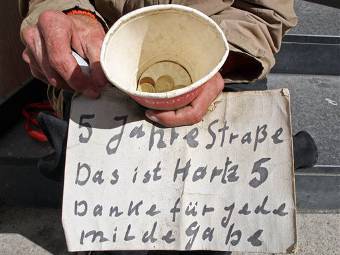 5 Jahre Straße
Das ist Hartz 5
Danke für jede
milde Gabe